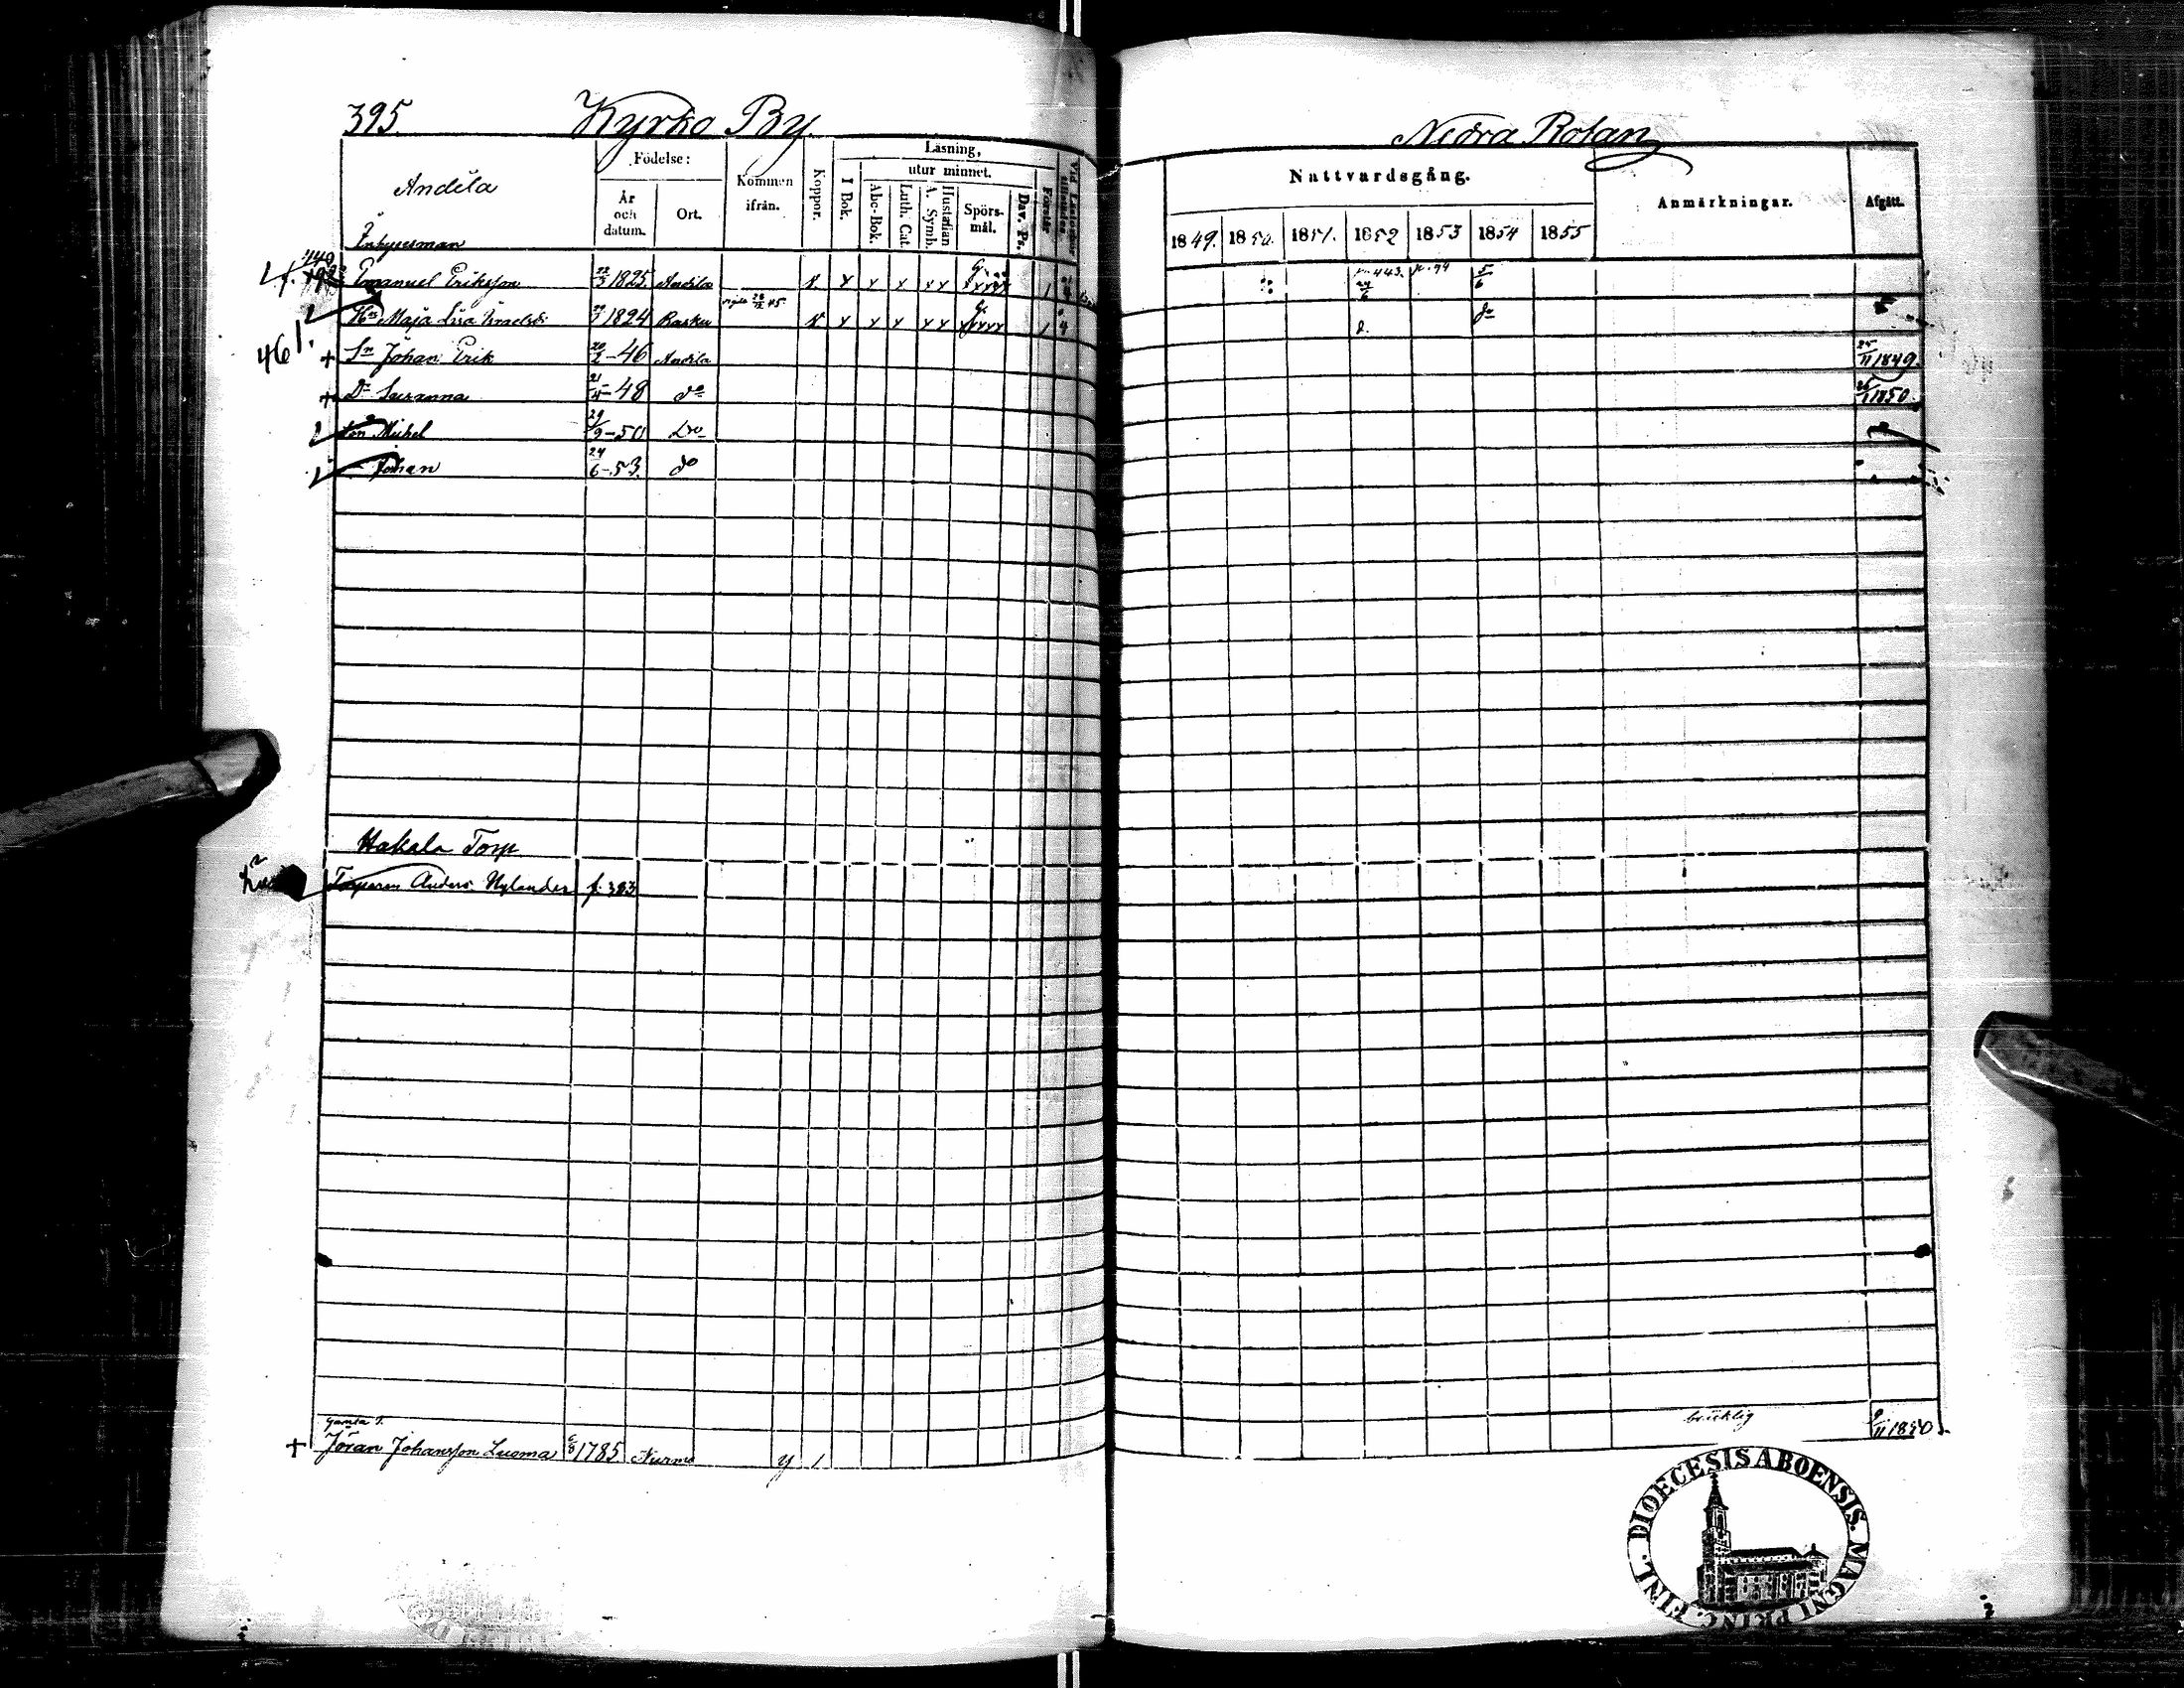 395. Kyrko By
Nedra Rotan
Andila
Födelse:
År och datum.
Ort.
Kommen ifrån.
Koppor.
Läsning,
utur minnet.
I Bok.
Abc-Bok.
Luth. Cat.
A. Symb.
Hustaflan
Spörs-mål.
Dav. Ps.
Förstår
Nattvardsgång.
1849. 1850. 1851. 1852 1853 1854 1855
Anmärkningar.
Afgått.
Inhysesman
Emanuel Eriksson 22/3 1825. Andila
Maja Lisa 1824 Rasku
461.
+ Sn Johan Erik 20/2 -46 Andila 25/11 1849.
+ Dr Susanna 21/4 -48 do 1850
Son Michel 29/9 -50 Do
Johan 24/6 -53. do
Hakala Torp
Torparen Anders Nylander f. 383
Gamla
+ Jöran Johansson Luoma 1785 Nurmo
bräcklig
DIOECESIS ABOENSIS. MAGNI PRINC. FINL.